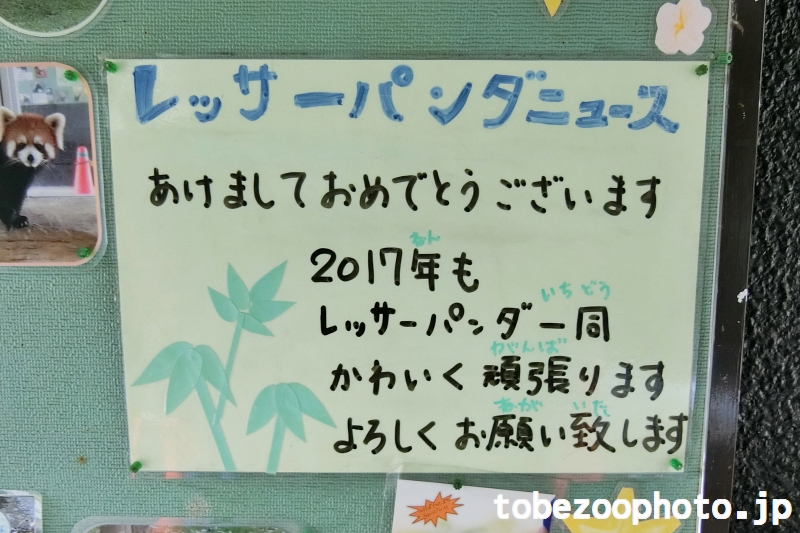 レッサーパンダニュース
あけましておめでとうございます
ねん
2017年も
いちどう
レッサーパンダ一同
がんば
かわいく頑張ります
ねが いた
よろしくお願い致します
tobezoophoto.jp